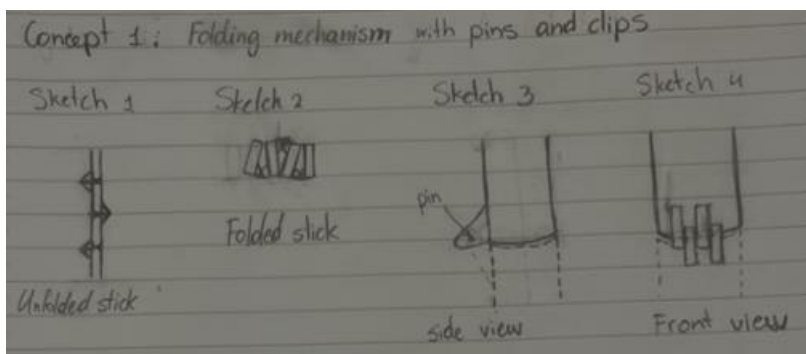 Concept 1: Folding mechanism with pins and clips
Sketch 1 Sketch 2 Sketch 3 Sketch 4
pin
Folded stick
Unfolded stick
side view Front view